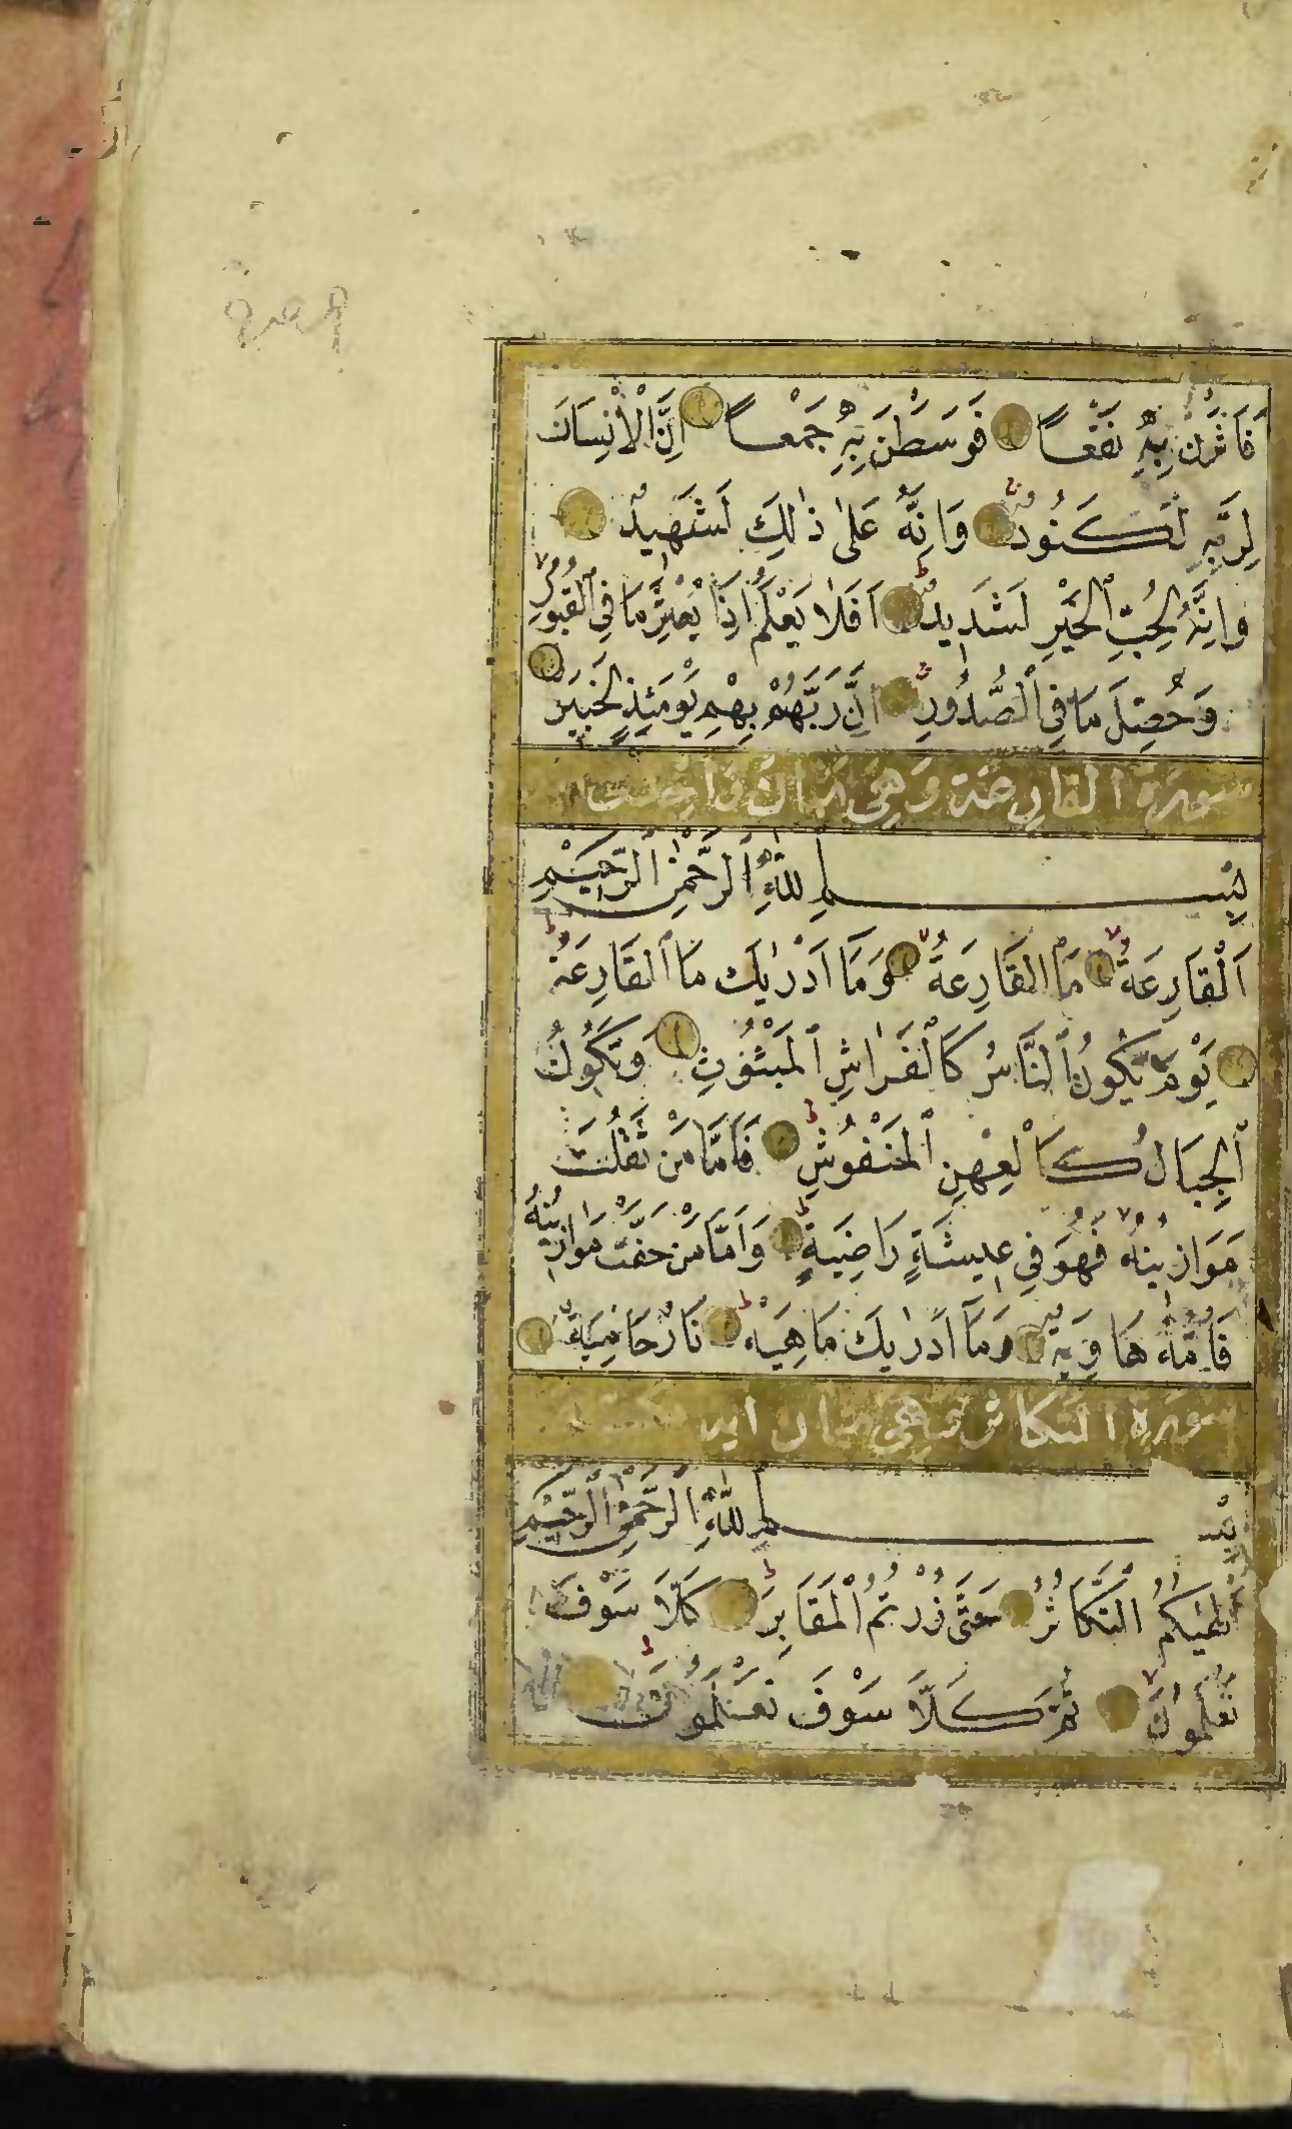 فَاَثَرْنَ بِهٖ نَقْعًا فَوَسَطْنَ بِهٖ جَمْعًا اِنَّ الْاِنْسَانَ
لِرَبِّهٖ لَكَنُودٌ وَاِنَّهُ عَلٰى ذٰلِكَ لَشَهٖيدٌ
وَاِنَّهُ لِحُبِّ الْخَيْرِ لَشَدٖيدٌ اَفَلَا يَعْلَمُ اِذَا بُعْثِرَ مَا فِي الْقُبُورِ
وَحُصِّلَ مَا فِي الصُّدُورِ اِنَّ رَبَّهُمْ بِهِمْ يَوْمَئِذٍ لَخَبٖيرٌ
سورة القارعة وهى ثمان
بِسْمِ اللّٰهِ الرَّحْمٰنِ الرَّحٖيمِ
اَلْقَارِعَةُ مَا الْقَارِعَةُ وَمَا اَدْرٰيكَ مَا الْقَارِعَةُ
يَوْمَ يَكُونُ النَّاسُ كَالْفَرَاشِ الْمَبْثُوثِ وَتَكُونُ
الْجِبَالُ كَالْعِهْنِ الْمَنْفُوشِ فَاَمَّا مَنْ ثَقُلَتْ
مَوَازٖينُهُ فَهُوَ فٖي عٖيشَةٍ رَاضِيَةٍ وَاَمَّا مَنْ خَفَّتْ مَوَازٖينُهُ
فَاُمُّهُ هَاوِيَةٌ وَمَا اَدْرٰيكَ مَا هِيَهْ نَارٌ حَامِيَةٌ
سورة التكاثر وهى ثمان آية
بِسْمِ اللّٰهِ الرَّحْمٰنِ الرَّحٖيمِ
اَلْهٰيكُمُ التَّكَاثُرُ حَتّٰى زُرْتُمُ الْمَقَابِرَ كَلَّا سَوْفَ
تَعْلَمُونَ ثُمَّ كَلَّا سَوْفَ تَعْلَمُونَ